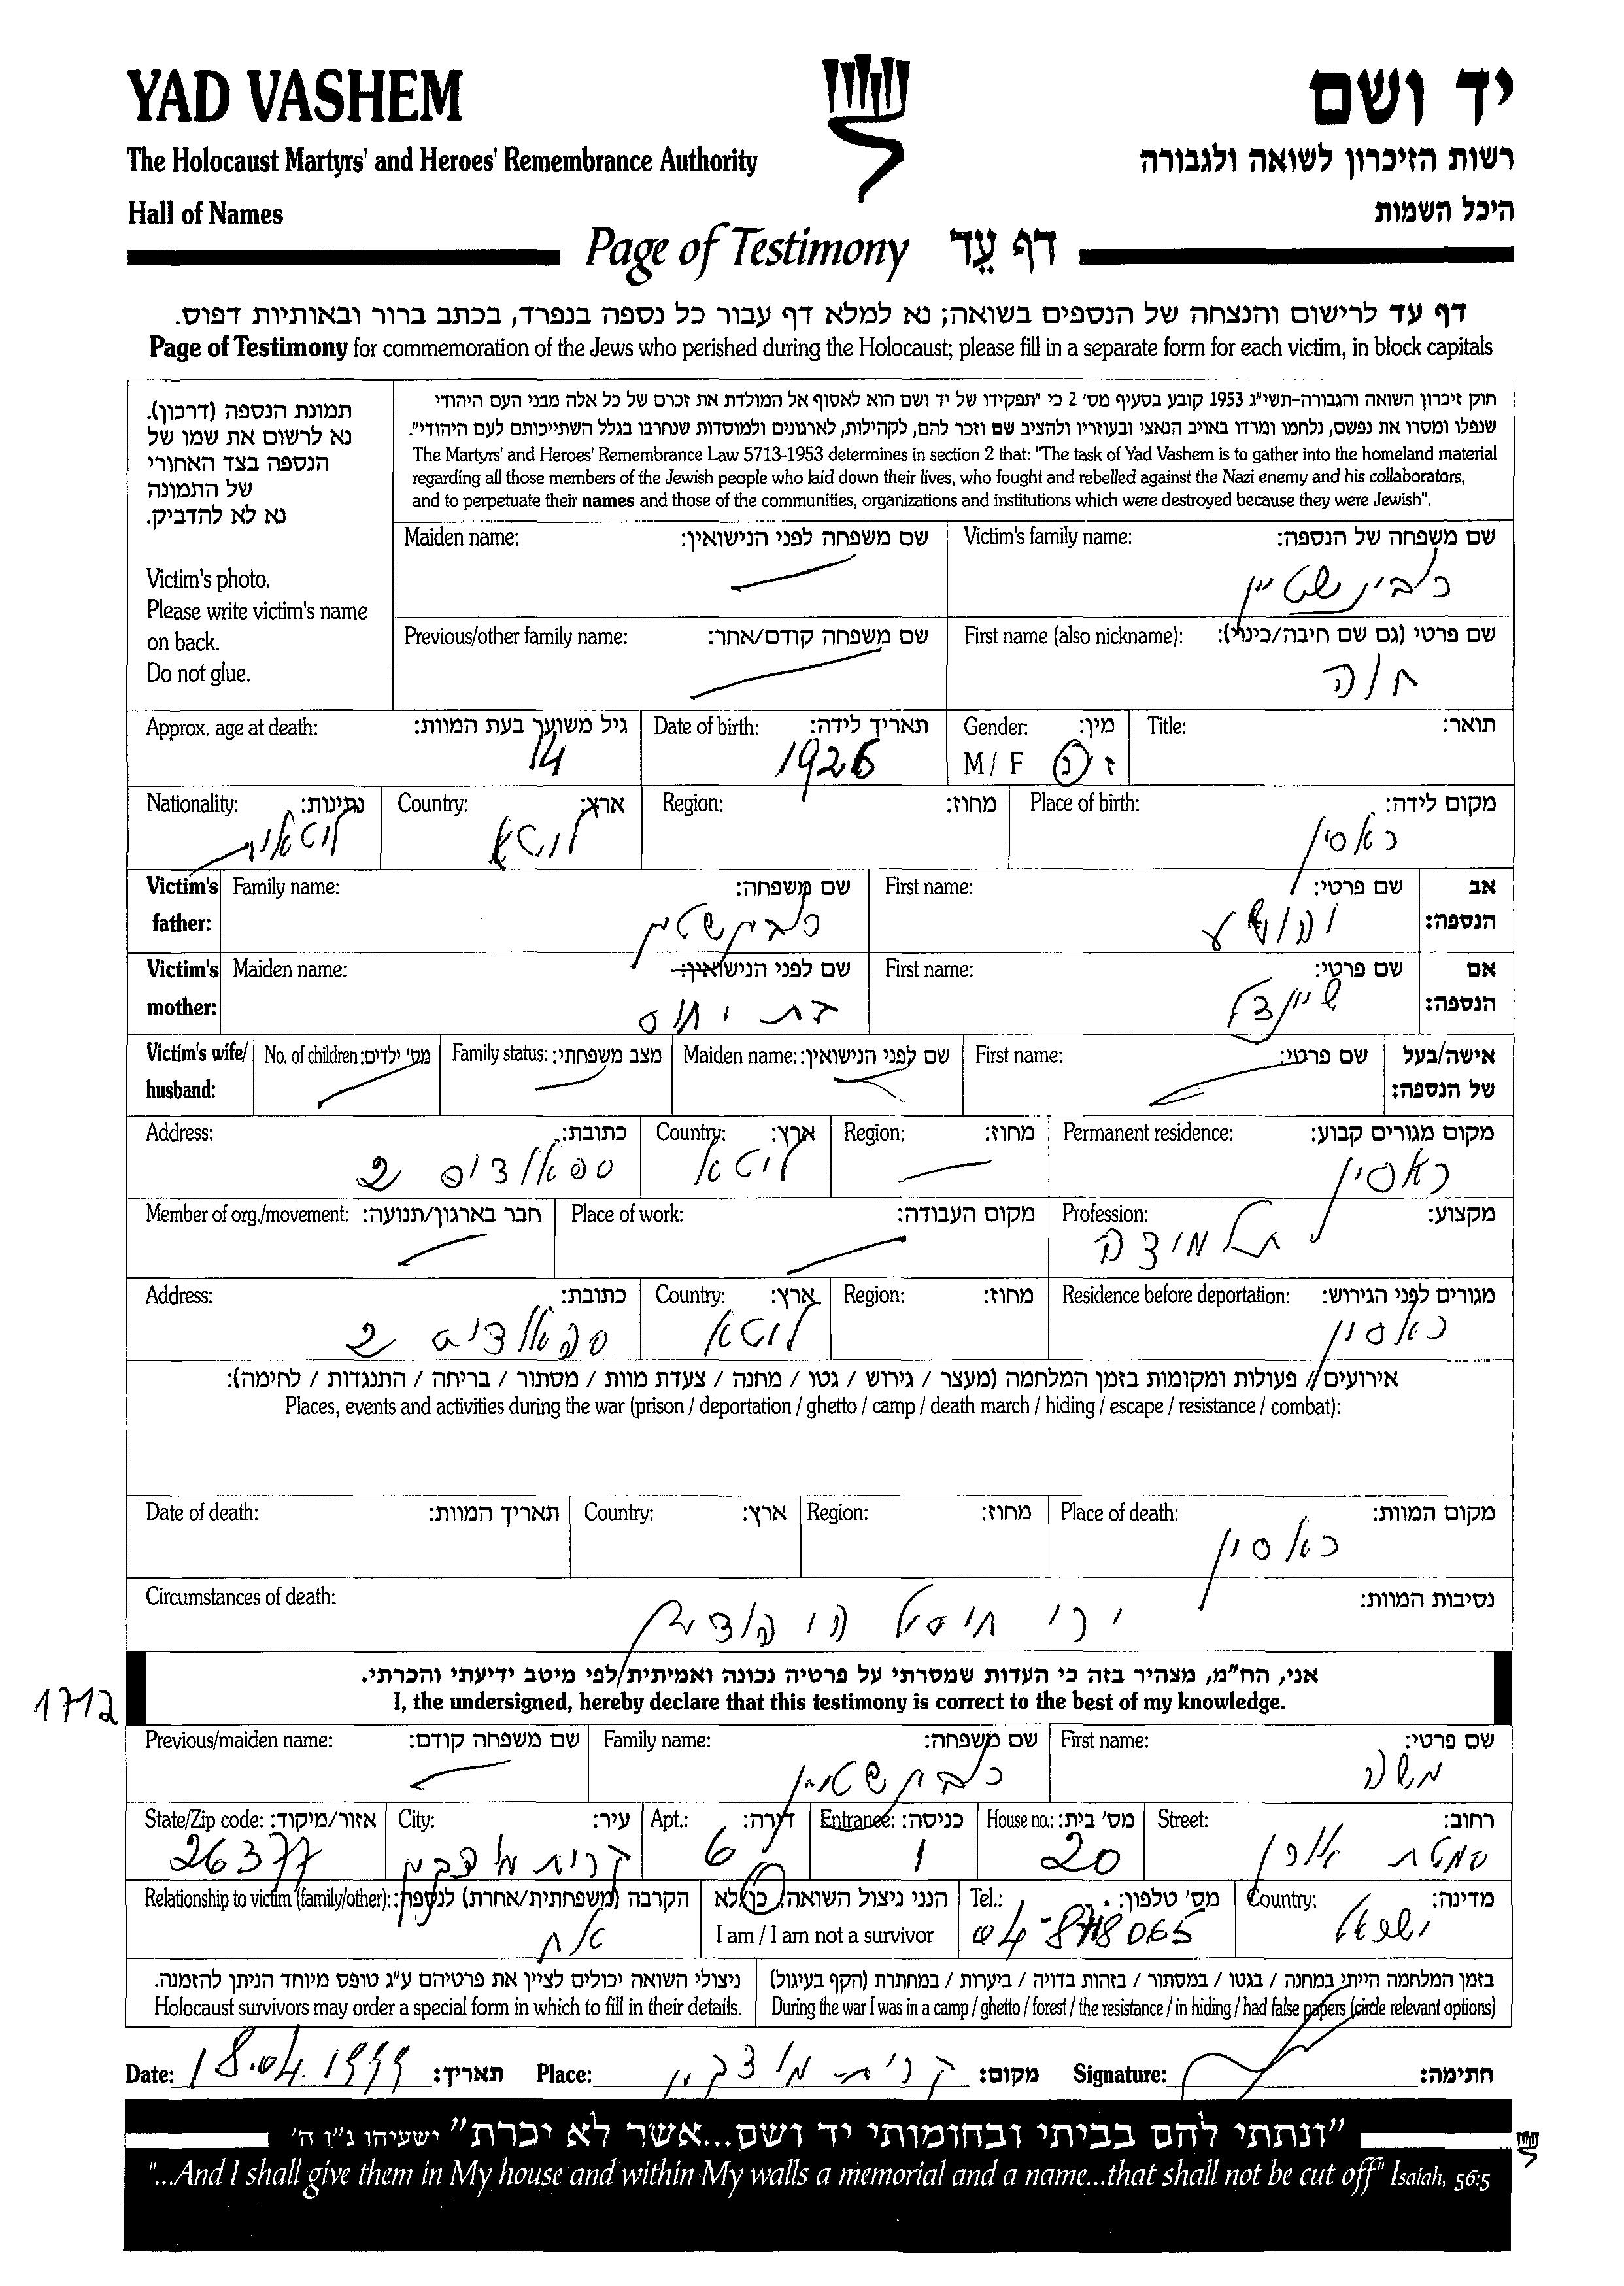 YAD VASHEM
יד ושם
The Holocaust Martyrs' and Heroes' Remembrance Authority
רשות הזיכרון לשואה ולגבורה
Hall of Names
היכל השמות
Page of Testimony דף עֵד
דף עד לרישום והנצחה של הנספים בשואה; נא למלא דף עבור כל נספה בנפרד, בכתב ברור ובאותיות דפוס.
Page of Testimony for commemoration of the Jews who perished during the Holocaust; please fill in a separate form for each victim, in block capitals
תמונת הנספה (דרכון).
נא לרשום את שמו של
הנספה בצד האחורי
של התמונה
נא לא להדביק.
Victim's photo.
Please write victim's name
on back.
Do not glue.
חוק זיכרון השואה והגבורה-תשי"ג 1953 קובע בסעיף מס' 2 כי "תפקידו של יד ושם הוא לאסוף אל המולדת את זכרם של כל אלה מבני העם היהודי
שנפלו ומסרו את נפשם, נלחמו ומרדו באויב הנאצי ובעוזריו ולהציב שם וזכר להם, לקהילות, לארגונים ולמוסדות שנחרבו בגלל השתייכותם לעם היהודי".
The Martyrs' and Heroes' Remembrance Law 5713-1953 determines in section 2 that: "The task of Yad Vashem is to gather into the homeland material
regarding all those members of the Jewish people who laid down their lives, who fought and rebelled against the Nazi enemy and his collaborators,
and to perpetuate their names and those of the communities, organizations and institutions which were destroyed because they were Jewish".
Victim's family name: שם משפחה של הנספה:
כלבינשטיין
Maiden name: שם משפחה לפני הנישואין:
First name (also nickname): שם פרטי (גם שם חיבה/כינוי):
חוה
Previous/other family name: שם משפחה קודם/אחר:
Title: תואר:
Gender: מין:
M / F ז / נ
Date of birth: תאריך לידה:
1926
Approx. age at death: גיל משוער בעת המוות:
14
Place of birth: מקום לידה:
ראסיין
Region: מחוז:
Country: ארץ:
ליטא
Nationality: נתינות:
ליטאית
Victim's father: אב הנספה:
First name: שם פרטי:
יהושע
Family name: שם משפחה:
כלבינשטיין
Victim's mother: אם הנספה:
First name: שם פרטי:
שיינדל
Maiden name: שם לפני הנישואין:
Victim's wife/ husband: אישה/בעל של הנספה:
First name: שם פרטי:
Maiden name: שם לפני הנישואין:
Family status: מצב משפחתי:
No. of children: מס' ילדים:
Permanent residence: מקום מגורים קבוע:
ראסיין
Region: מחוז:
Country: ארץ:
ליטא
Address: כתובת:
2
Profession: מקצוע:
תלמידה
Place of work: מקום העבודה:
Member of org./movement: חבר בארגון/תנועה:
Residence before deportation: מגורים לפני הגירוש:
ראסיין
Region: מחוז:
Country: ארץ:
ליטא
Address: כתובת:
2
אירועים / פעולות ומקומות בזמן המלחמה (מעצר / גירוש / גטו / מחנה / צעדת מוות / מסתור / בריחה / התנגדות / לחימה):
Places, events and activities during the war (prison / deportation / ghetto / camp / death march / hiding / escape / resistance / combat):
Place of death: מקום המוות:
ראסיין
Region: מחוז:
Country: ארץ:
Date of death: תאריך המוות:
Circumstances of death: נסיבות המוות:
1712
אני, הח"מ, מצהיר בזה כי העדות שמסרתי על פרטיה נכונה ואמיתית לפי מיטב ידיעתי והכרתי.
I, the undersigned, hereby declare that this testimony is correct to the best of my knowledge.
First name: שם פרטי:
משה
Family name: שם משפחה:
כלבינשטיין
Previous/maiden name: שם משפחה קודם:
Street: רחוב:
סמטת אורן
House no.: מס' בית:
20
Entrance: כניסה:
1
Apt.: דירה:
6
City: עיר:
קרית מוצקין
State/Zip code: אזור/מיקוד:
26377
Country: מדינה:
ישראל
Tel.: מס' טלפון:
הנני ניצול השואה: כן/לא
I am / I am not a survivor
Relationship to victim (family/other): הקרבה (משפחתית/אחרת) לנספה:
אח
בזמן המלחמה הייתי במחנה / בגטו / במסתור / בזהות בדויה / ביערות / במחתרת (הקף בעיגול)
During the war I was in a camp / ghetto / forest / the resistance / in hiding / had false papers (circle relevant options)
ניצולי השואה יכולים לציין את פרטיהם ע"ג טופס מיוחד הניתן להזמנה.
Holocaust survivors may order a special form in which to fill in their details.
Date: 18.04.1999 תאריך: Place: קרית מוצקין מקום: Signature: חתימה:
"ונתתי להם בביתי ובחומותי יד ושם...אשר לא יכרת" ישעיהו נ"ו ה'
"...And I shall give them in My house and within My walls a memorial and a name...that shall not be cut off" Isaiah, 56:5